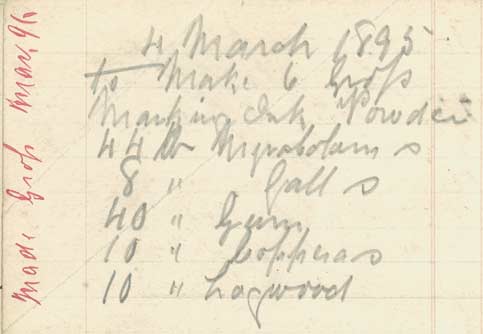 4 March 1895
to Make 6 Gross
Marking Ink Powder
44 lb Myrobolams
8 " Galls
40 " Gum
10 " Copperas
10 " Logwood
Made Gross May